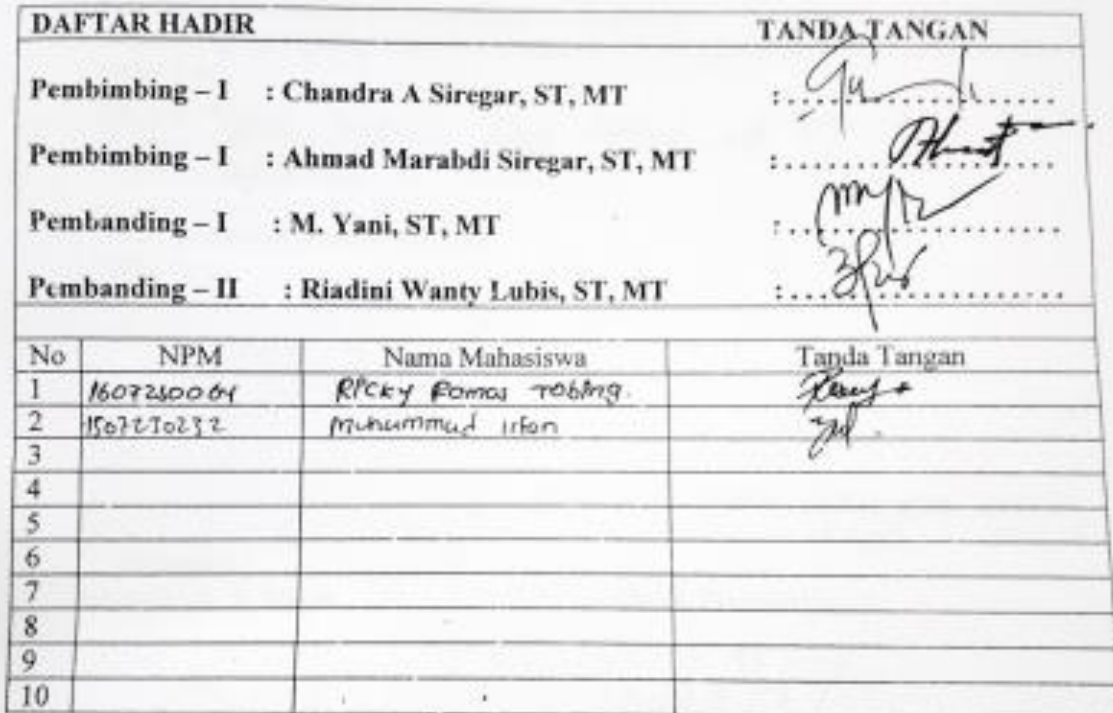 DAFTAR HADIR TANDA TANGAN
Pembimbing – I : Chandra A Siregar, ST, MT : ..............................
Pembimbing – I : Ahmad Marabdi Siregar, ST, MT : ..............................
Pembanding – I : M. Yani, ST, MT : ..............................
Pembanding – II : Riadini Wanty Lubis, ST, MT : ..............................
No NPM Nama Mahasiswa Tanda Tangan
1 1607230064 Ricky Ramas Tobing.
2 1507230232 Muhammad irfan
3
4
5
6
7
8
9
10